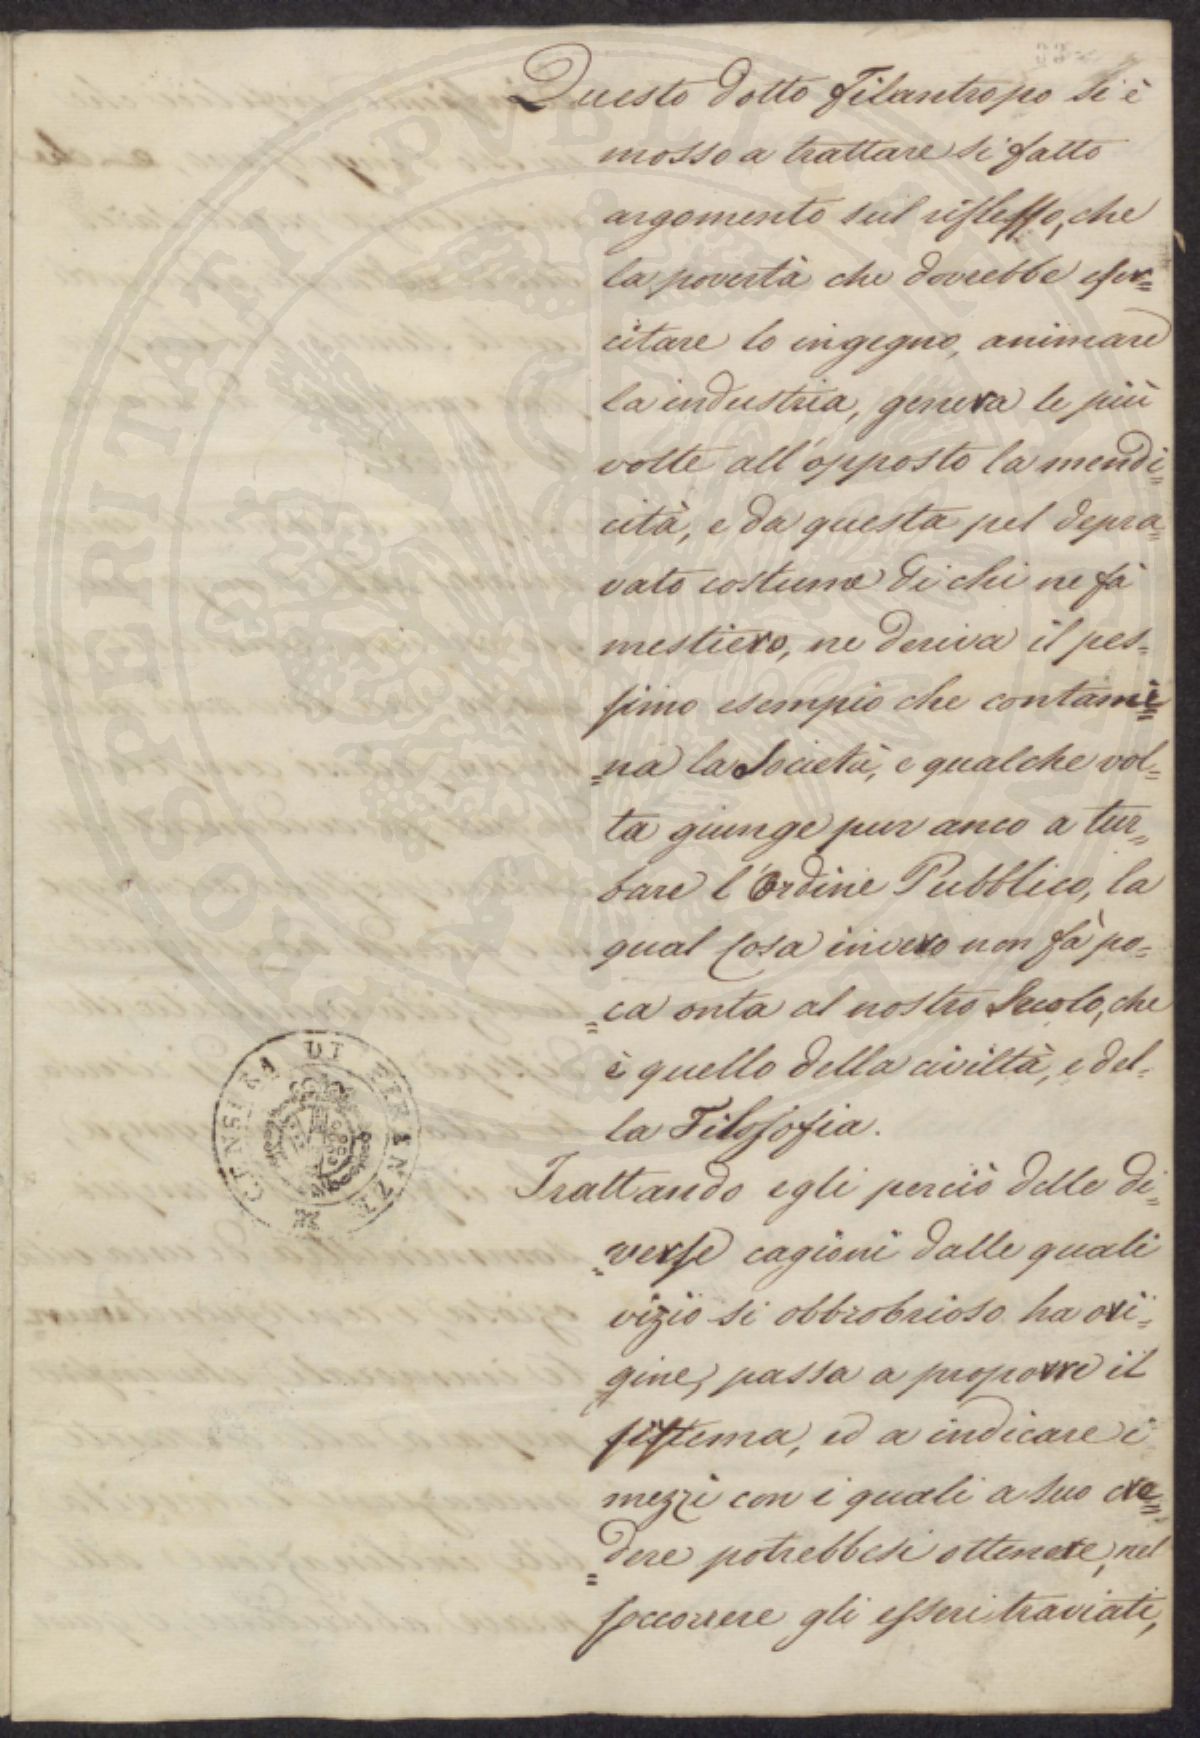 Questo dotto Filantropo si è
mosso a trattare sì fatto
argomento sul riflesso, che
la povertà che dovrebbe eser=
citare lo ingegno, animare
la industria, genera le più
volte all'opposto la mendi=
cità, e da questa pel depra=
vato costume di chi ne fà
mestiero, ne deriva il pes=
simo esempio che contami=
=na la Società, e qualche vol=
ta giunge pur anco a tur=
bare l'Ordine Pubblico, la
qual Cosa invero non fà po=
=ca onta al nostro Secolo, che
è quello della civiltà, e del=
la Filosofia.
Trattando egli perciò delle di=
=verse cagioni dalle quali
vizio sì obbrobrioso ha ori=
gine, passa a proporre il
sistema, ed a indicare i
mezzi con i quali a suo cre=
=dere potrebbesi ottenere, nel
soccorrere gli esseri traviati,
CENSURA DI FIRENZE
PROSPERITATI PUBLICAE